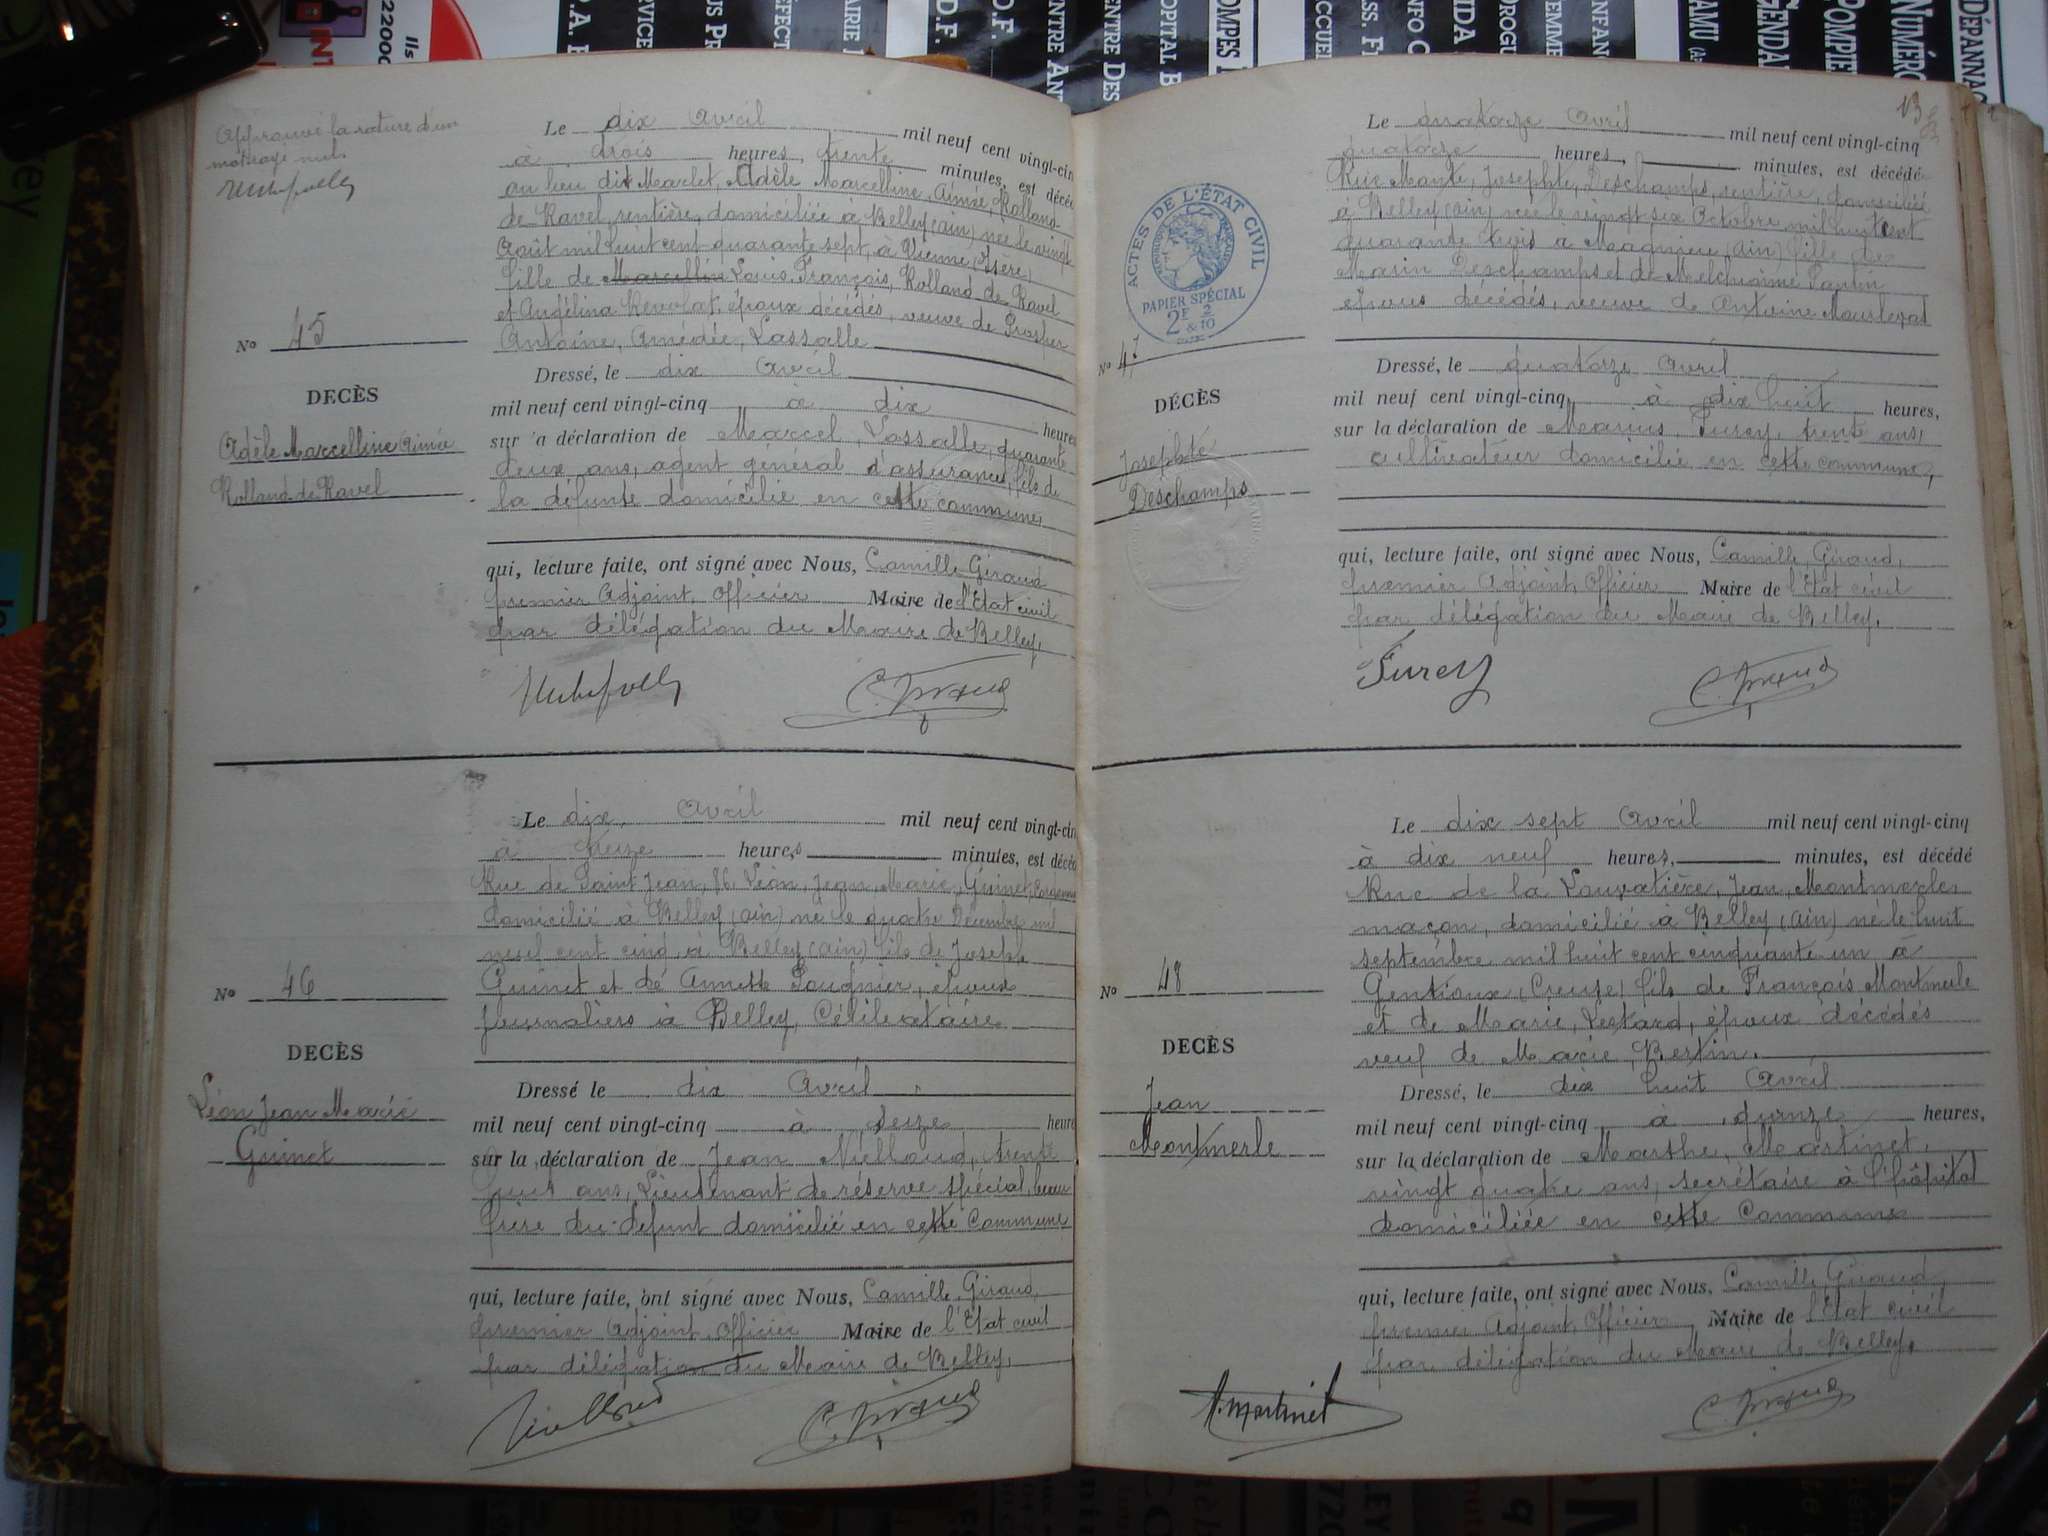 Approuvé la rature d'un
mot rayé nul.
Le dix Avril mil neuf cent vingt-cin
à trois heures, trente minutes, est décéd
au lieu dit Marlet, Adèle Marcelline, Aimée, Rolland
de Ravel, rentière, domiciliée à Belley (ain) née le vingt
Août mil huit cent quarante sept, à Vienne (Isère)
fille de Marcellin Louis, François, Rolland de Ravel
et Angélina Revolat, époux décédés, veuve de Prosper
Antoine, Amédée, Lassalle
No 45
DECÈS
Adèle Marcelline Aimée
Rolland de Ravel
Dressé, le dix Avril
mil neuf cent vingt-cinq à dix heures
sur a déclaration de Marcel, Lassalle, quarante
deux ans, agent général d'assurances, fils de
la défunte domicilié en cette commune,
qui, lecture faite, ont signé avec Nous, Camille Giraud
premier Adjoint, Officier Maire de l'Etat civil
par délégation du Maire de Belley.
C. Giraud
Le dix, Avril mil neuf cent vingt-cin
à seize heures, minutes, est décéd
Rue de Saint Jean, 86, Léon, Jean, Marie, Guinet,
domicilié à Belley (ain) né le quatre Décembre mil
neuf cent cinq à Belley (ain) fils de Joseph
Guinet et de Annette Pougnier, époux
journaliers à Belley, Célibataire
No 46
DECÈS
Léon Jean Marie
Guinet
Dressé le dix Avril
mil neuf cent vingt-cinq à seize heure
sur la déclaration de Jean Niélloud, trente
ans, Lieutenant de réserve spécial, beau
frère du défunt domicilié en cette Commune
qui, lecture faite, ont signé avec Nous, Camille, Giraud,
premier Adjoint, Officier Maire de l'Etat civil
par délégation du Maire de Belley.
C. Giraud
13
Le quatorze Avril mil neuf cent vingt-cinq
quatorze heures, minutes, est décédé
Rue Mante, Josephte, Deschamps, rentière, domiciliée
à Belley (ain) née le vingt six Octobre mil huit cent
quarante trois à Magnieu (ain) fille de
Marin Deschamps et de Melchionne Pantin
époux décédés, veuve de Antoine
ACTES DE L'ÉTAT CIVIL
PAPIER SPÉCIAL
2F 2
&10
No 47
DÉCÈS
Josephte
Deschamps
Dressé, le quatorze Avril
mil neuf cent vingt-cinq à dix huit heures,
sur la déclaration de Marius, Furey, trente ans,
cultivateur domicilié en cette commune,
qui, lecture faite, ont signé avec Nous, Camille, Giraud,
premier Adjoint, Officier Maire de l'Etat civil
par délégation du Maire de Belley.
Furey C. Giraud
Le dix sept Avril mil neuf cent vingt-cinq
à dix neuf heures, minutes, est décédé
Rue de la Louvatière, Jean, Montmerle
maçon, domicilié à Belley (ain) né le huit
septembre mil huit cent cinquante un à
Gentioux (Creuse) fils de François Montmerle
et de Marie, Lestard, époux décédés
veuf de Marie, Bertin.
No 48
DECÈS
Jean
Montmerle
Dressé, le dix huit Avril
mil neuf cent vingt-cinq à quinze heures,
sur la déclaration de Marthe, Martinet,
vingt quatre ans, secrétaire à l'hôpital
domiciliée en cette Commune
qui, lecture faite, ont signé avec Nous, Camille, Giraud,
premier Adjoint, Officier Maire de l'Etat civil
par délégation du Maire de Belley.
M. Martinet C. Giraud